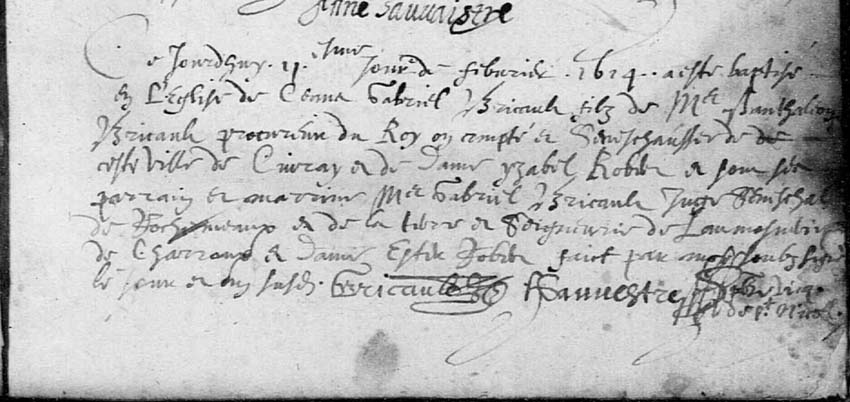 Anne Sauvaistre
Ce Jourdhuy 11 esme Jour de febvrier 1614 a este baptise
en l'Eglise de Ceans Gabriel Bricault filz de Me Panthaleon
Bricault procureur du Roy en compte et Seneschaussee de
ceste ville de Civray et de Dame yzabel Robert et son ses
parrain et marrine Me Gabriel Bricault Juge Seneschal
de Rochemeaux et de la terre et Seigneurie de
de Charroux et Dame Ester Robert faict par moy soubz signe
le jour et an susd. Bricault Sauvestre
de St Nicol